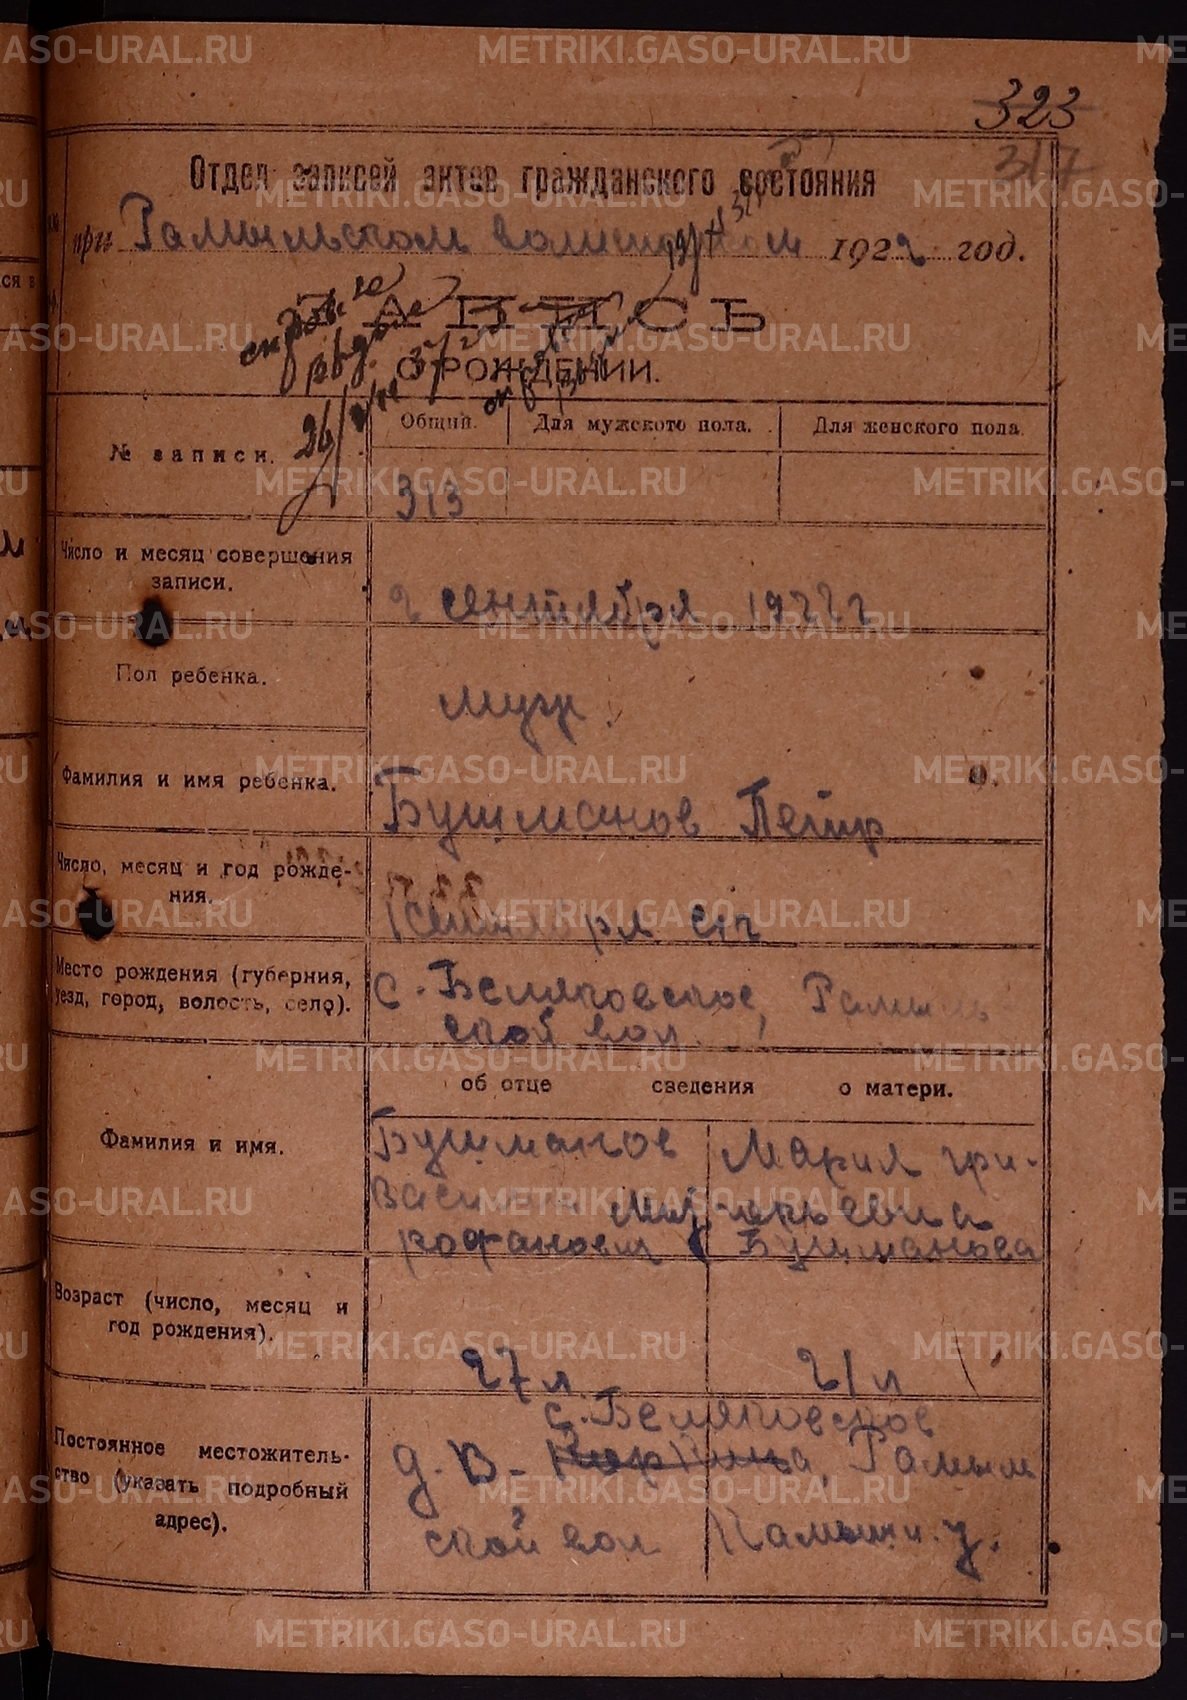 323
317
Отдел записей актов гражданского состояния
при Рамыльском волисполком 1922 год.
ЗАПИСЬ
О РОЖДЕНИИ.
26/
№ записи.
Общий.
Для мужского пола.
Для женского пола.
313
Число и месяц совершения
записи.
2 сентября 1922 г
Пол ребенка.
Муж.
Фамилия и имя ребенка.
Бушманов Петр
Число, месяц и год рожде-
ния.
1 сентября с/г
Место рождения (губерния,
уезд, город, волость, село).
с. Беляковское, Рамыль
ской вол.
об отце сведения о матери.
Фамилия и имя.
Бушманов
Василий Мит
рофанович
Мария Гри-
горьевна
Бушманова
Возраст (число, месяц и
год рождения).
27 л.
21 л
Постоянное местожитель-
ство (указать подробный
адрес).
с. Беляковское
д. В- Рамыль
ской вол Камышл. у.
METRIKI.GASO-URAL.RU